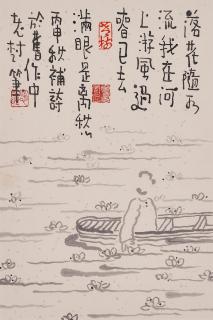 落花随水
流我在河
上游风过
春已去
满眼是离愁
丙申秋補詩
於舊作中
老村筆